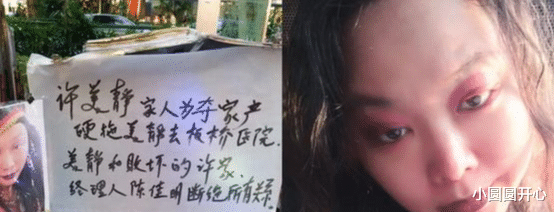 许美静家人为夺家产
硬拖美静去板桥医院.
美静和败坏的许家.
经理人陈佳明断绝所有关系.
小圆圆开心